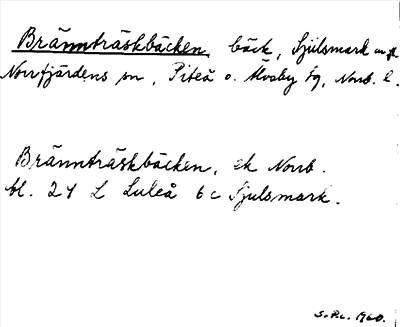 Brännträskbäcken, bäck, Sjulsmark
Norrfjärdens sn, Piteå o. Älvsby tg, Norrb. l.
Brännträskbäcken, ek Norrb.
bl. 24 L Luleå 6 c Sjulsmark.
1960.